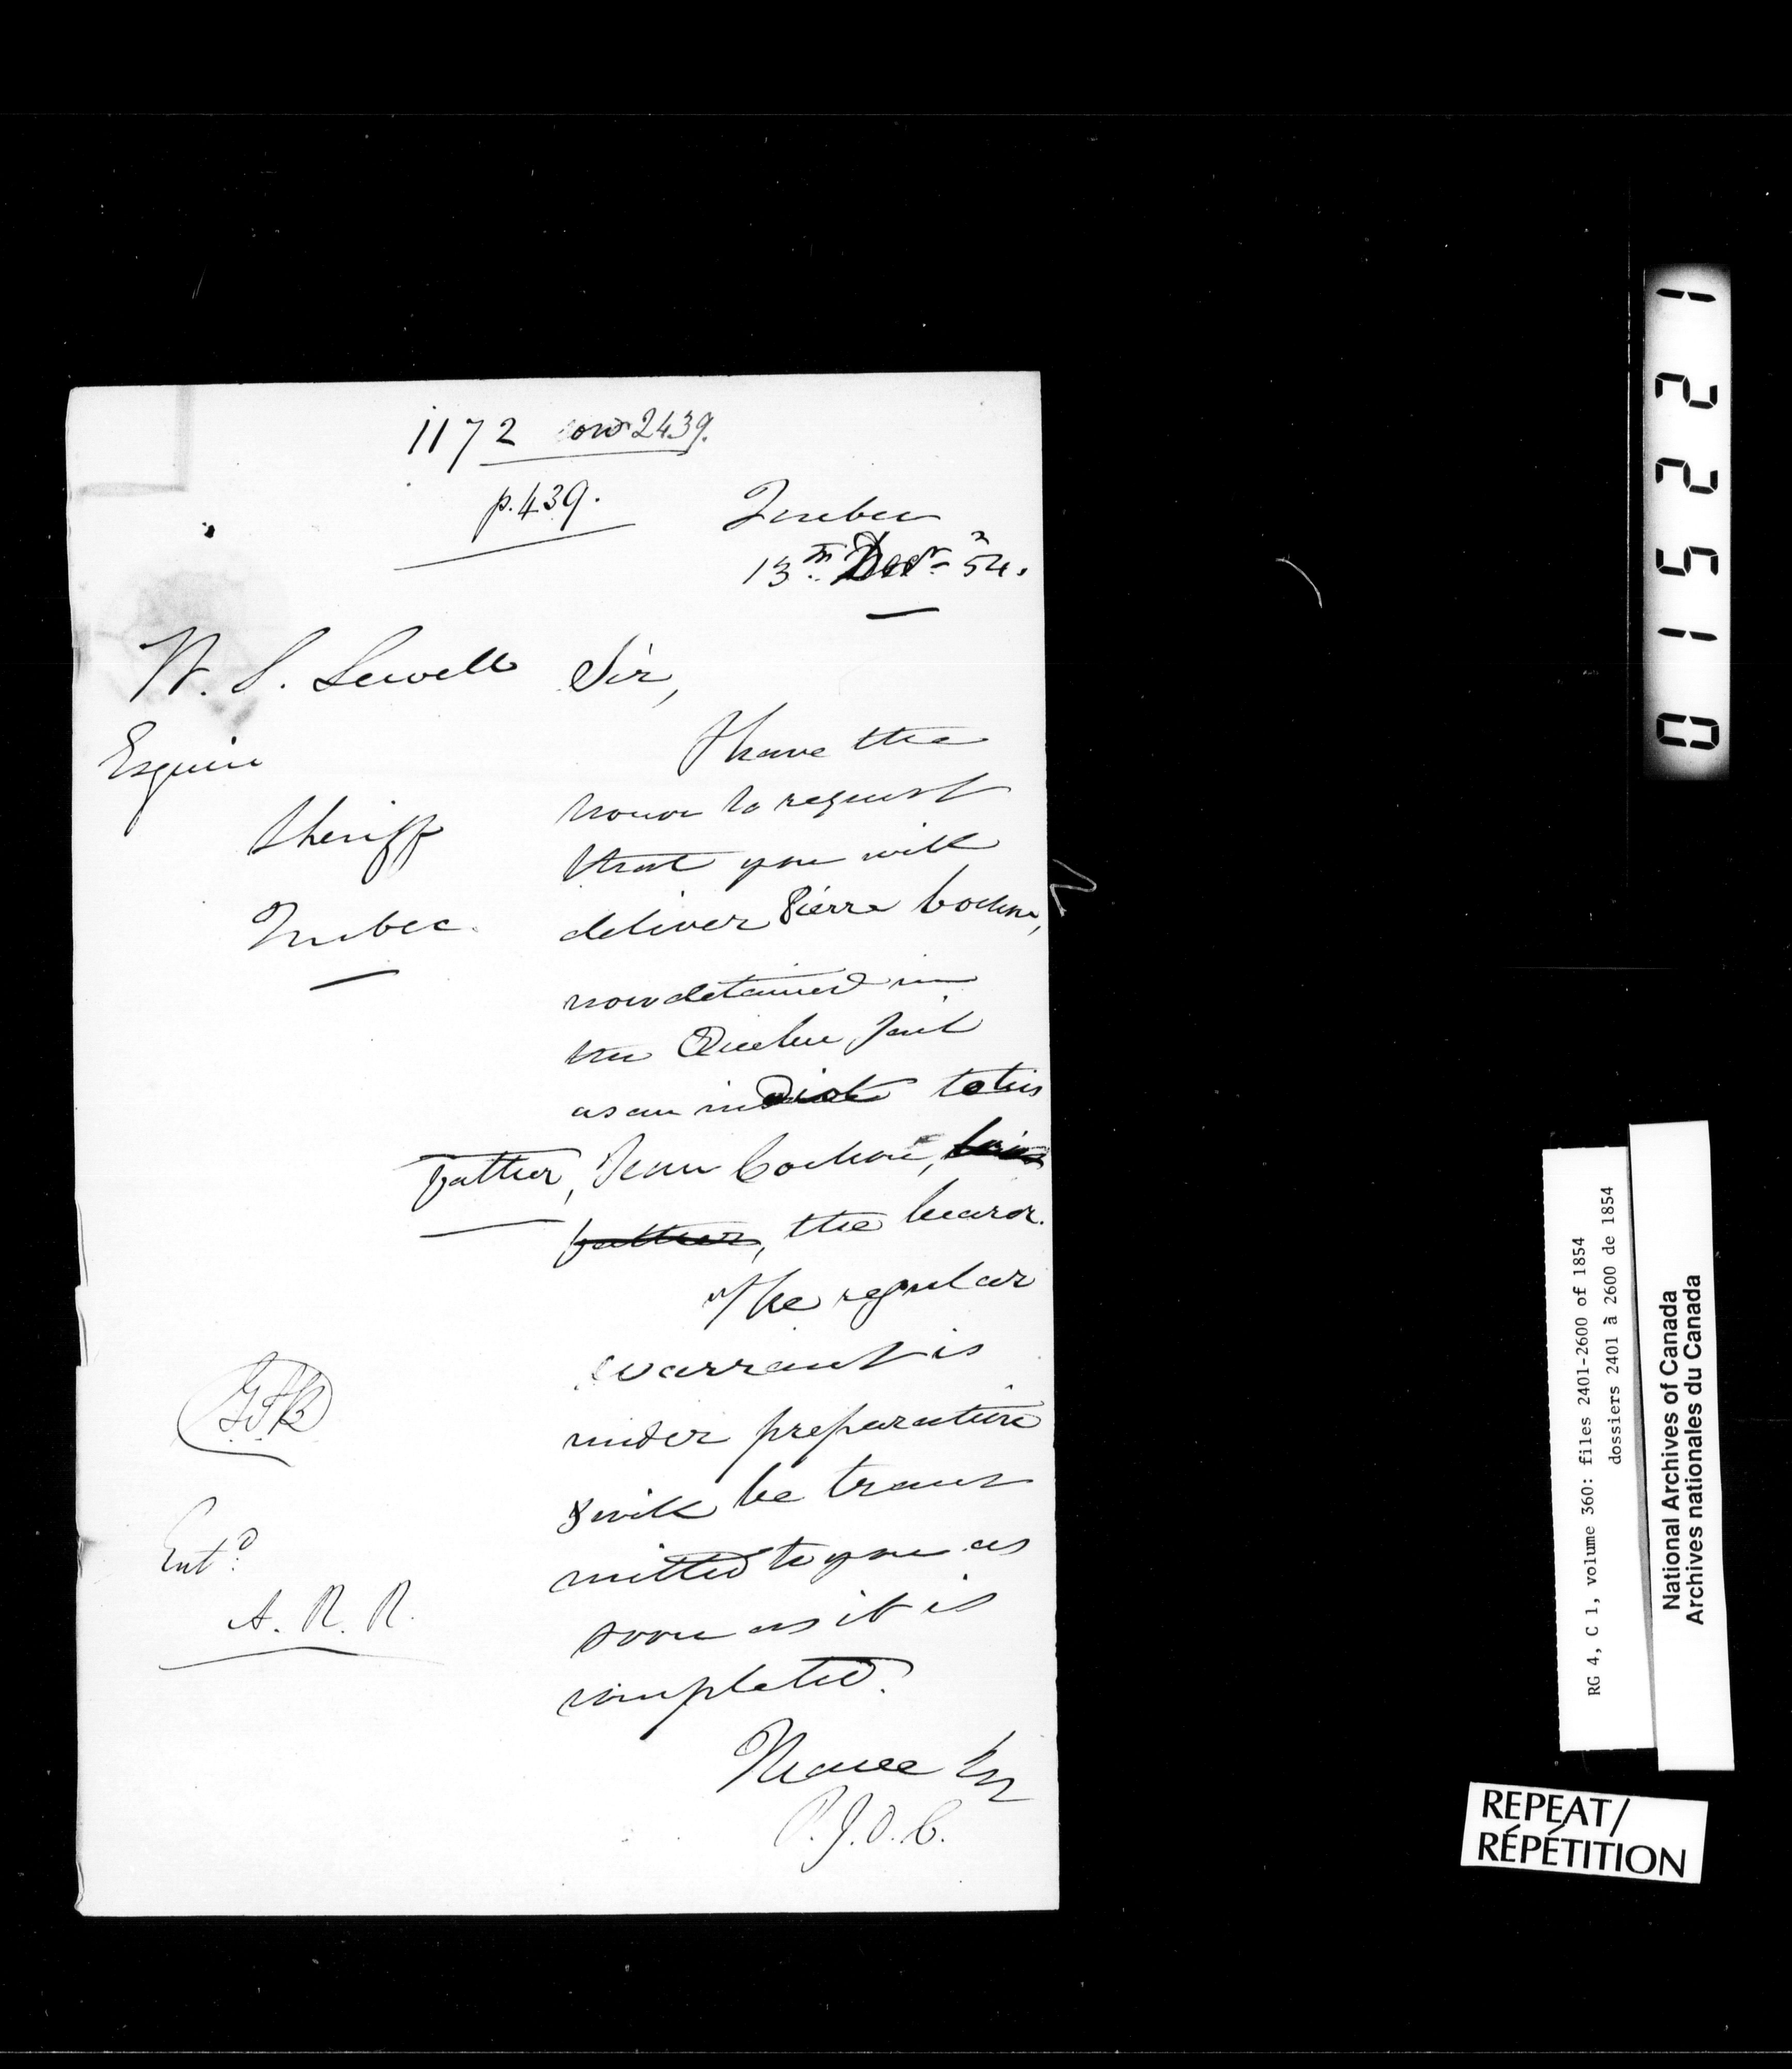 1172 2439.
p. 439.
Quebec
13th Decr 54.
W. S. Sewell
Esquire
Sheriff
Quebec.
Sir,
I have the
honor to request
that you will
deliver Pierre Cochon,
now detained in
the Quebec Jail
as an idiot to his
father, Jean Cochon, his
father, the bearer.
The regular
warrant is
under preparation
& will be trans
mitted to you as
soon as it is
completed.
I have &c
P.J.O.C.
Entd.
A. R. R.
015221
RG 4, C 1, volume 360: files 2401-2600 of 1854
dossiers 2401 à 2600 de 1854
National Archives of Canada
Archives nationales du Canada
REPEAT/
RÉPÉTITION